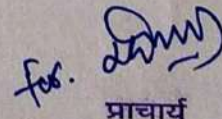 for.
प्राचार्य